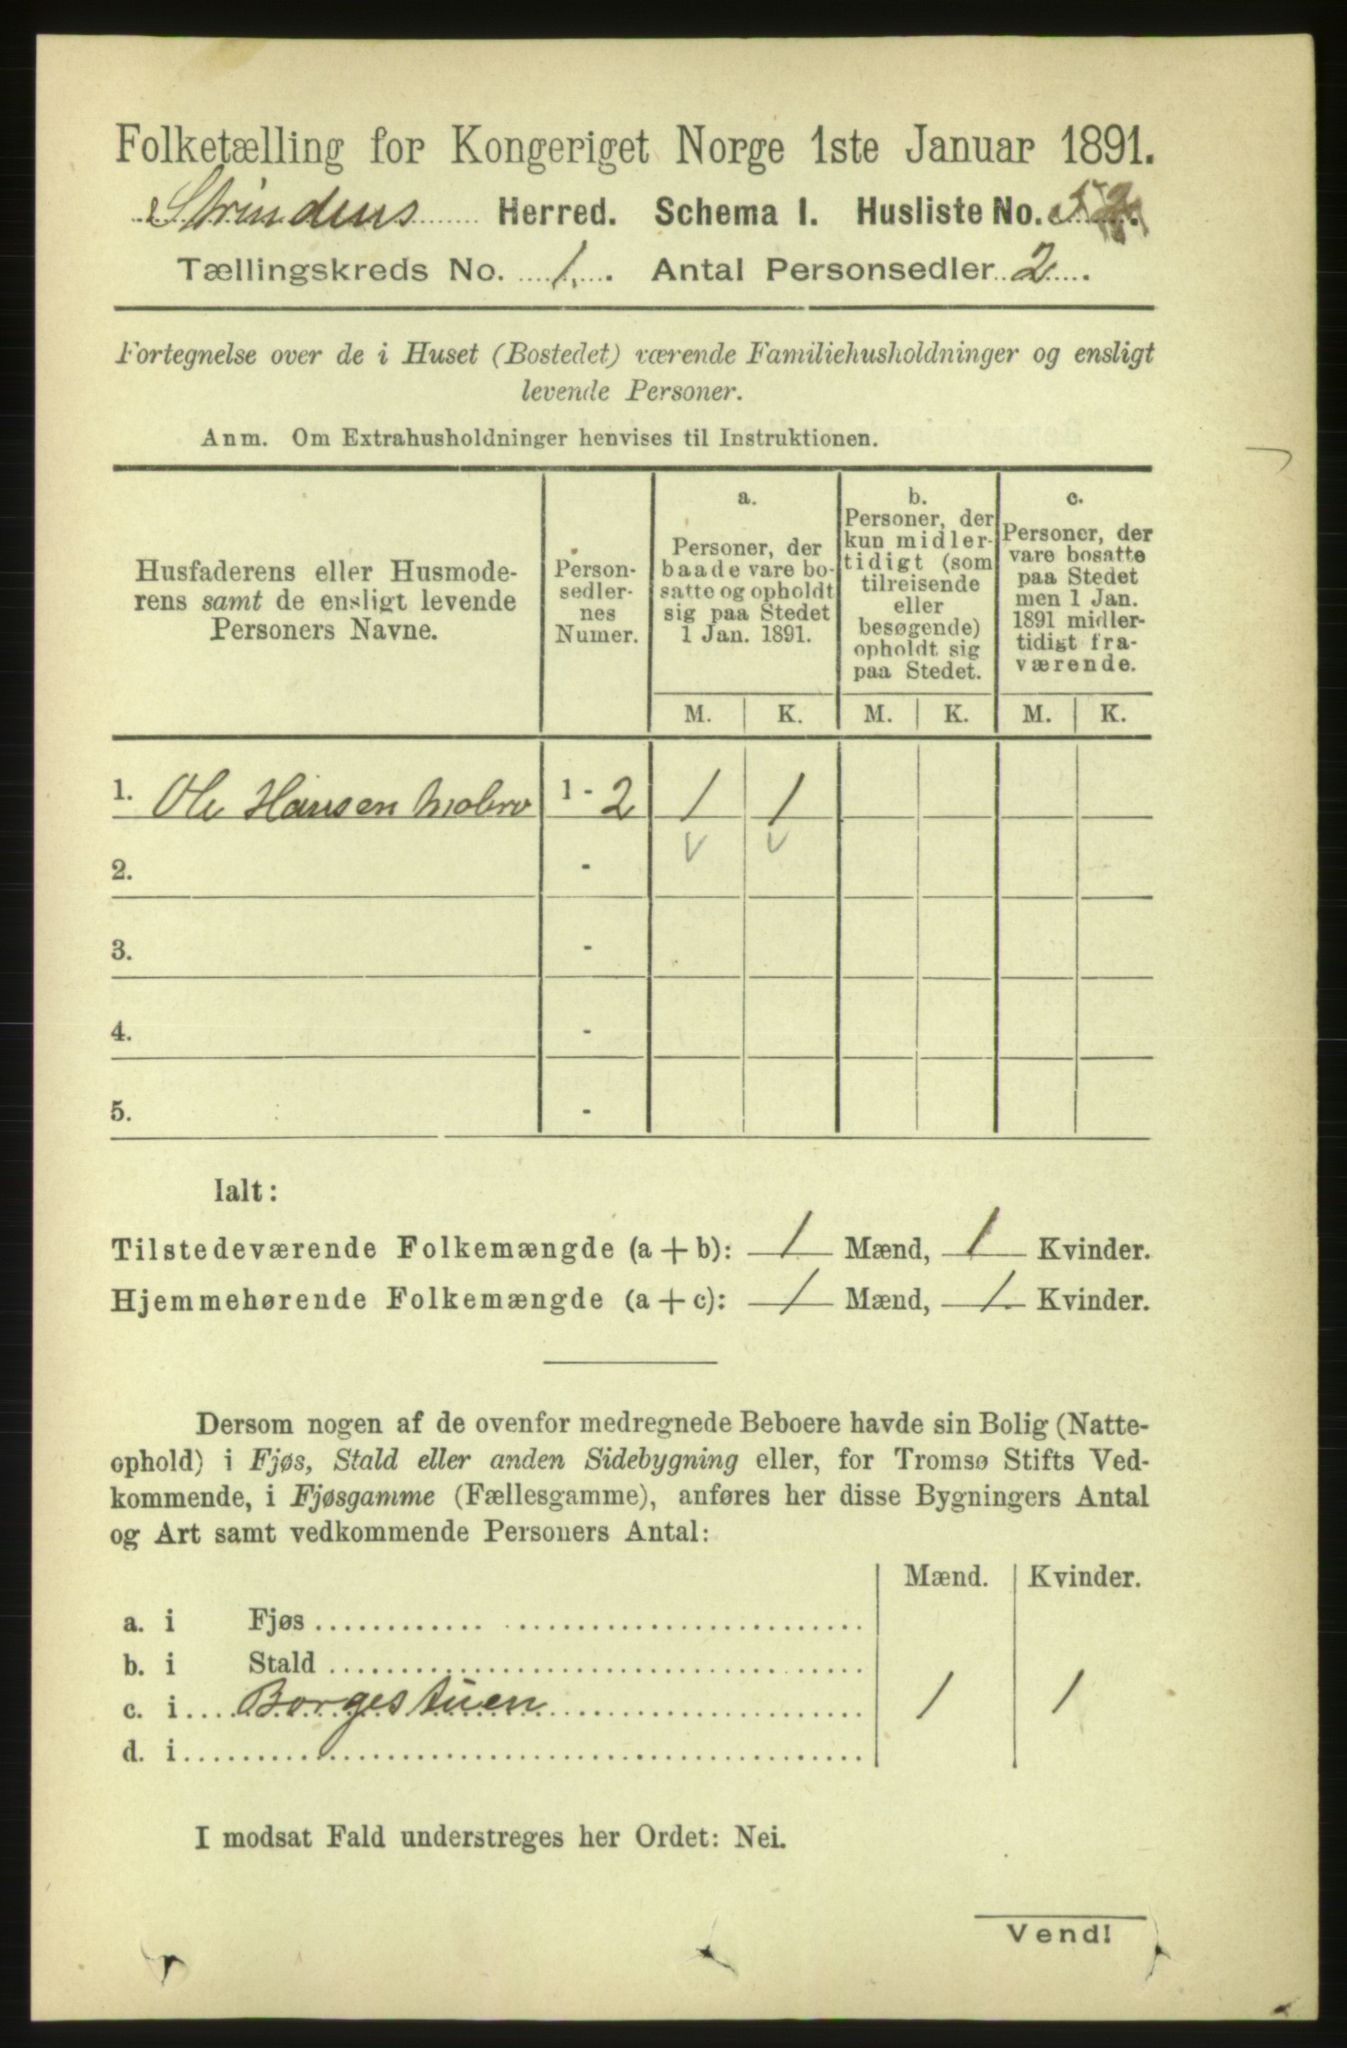 Folketælling for Kongeriget Norge 1ste Januar 1891.
Strindens Herred. Schema I. Husliste No.
Tællingskreds No. 1. Antal Personsedler 2.
Fortegnelse over de i Huset (Bostedet) værende Familiehusholdninger og ensligt
levende Personer.
Anm. Om Extrahusholdninger henvises til Instruktionen.
Husfaderens eller Husmode-
rens samt de ensligt levende
Personers Navne.
Person-
sedler-
nes
Numer.
a.
Personer, der
baade vare bo-
satte og opholdt
sig paa Stedet
1 Jan. 1891.
b.
Personer, der
kun midler-
tidigt (som
tilreisende
eller
besøgende)
opholdt sig
paa Stedet.
c.
Personer, der
vare bosatte
paa Stedet
men 1 Jan.
1891 midler-
tidigt fra-
værende.
M. K. M. K. M. K.
1. Ole Hansen 1 - 2 1 1
2. -
3. -
4. -
5. -
Ialt:
Tilstedeværende Folkemængde (a + b): 1 Mænd, 1 Kvinder.
Hjemmehørende Folkemængde (a + c): 1 Mænd, 1 Kvinder.
Dersom nogen af de ovenfor medregnede Beboere havde sin Bolig (Natte-
ophold) i Fjøs, Stald eller anden Sidebygning eller, for Tromsø Stifts Ved-
kommende, i Fjøsgamme (Fællesgamme), anføres her disse Bygningers Antal
og Art samt vedkommende Personers Antal:
Mænd. Kvinder.
a. i Fjøs
b. i Stald
c. i Borgestuen 1 1
d. i
I modsat Fald understreges her Ordet: Nei.
Vend!